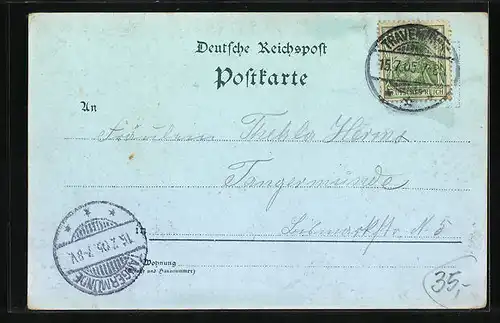 Deutsche Reichspost
Postkarte
TRAVEMÜNDE
15.7.05.
An
Fräulein Thekla Herms
Tangermünde
in
Bismarkstr. N. 5
Wohnung
(Straße und Hausnummer)
TANGERMÜNDE
15.7.05. 7-8V.
35,-